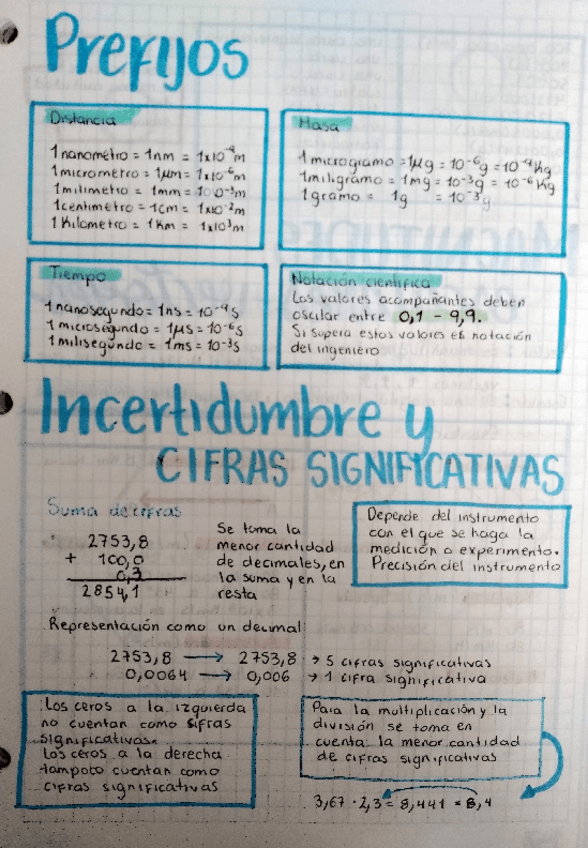 Prefijos
Distancia
1 nanometro = 1nm = 1x10⁻⁹m
1 micrometro = 1μm = 1x10⁻⁶m
1 milimetro = 1mm = 10⁻³m
1 centimetro = 1cm = 1x10⁻²m
1 Kilometro = 1Km = 1x10³m
Masa
1 microgramo = 1μg = 10⁻⁶g = 10⁻⁹Kg
1 miligramo = 1mg = 10⁻³g = 10⁻⁶Kg
1 gramo = 1g = 10⁻³g
Tiempo
1 nanosegundo = 1ns = 10⁻⁹s
1 microsegundo = 1μs = 10⁻⁶s
1 milisegundo = 1ms = 10⁻³s
Notación cientifica
Los valores acompañantes deben
oscilar entre 0,1 - 9,9.
Si supera estos valores es notación
del ingeniero
Incertidumbre y
CIFRAS SIGNIFICATIVAS
Suma de cifras
2753,8
+ 100,0
0,3
2854,1
Se toma la
menor cantidad
de decimales, en
la suma y en la
resta
Depende del instrumento
con el que se haga la
medición o experimento.
Precisión del instrumento
Representación como un decimal:
2753,8 → 2753,8 → 5 cifras significativas
0,0064 → 0,006 → 1 cifra significativa
Los ceros a la izquierda
no cuentan como sifras
significativas.
Los ceros a la derecha
tampoco cuentan como
cifras significativas
Para la multiplicación y la
división se toma en
cuenta la menor cantidad
de cifras significativas
3,67 · 2,3 = 8,441 = 8,4